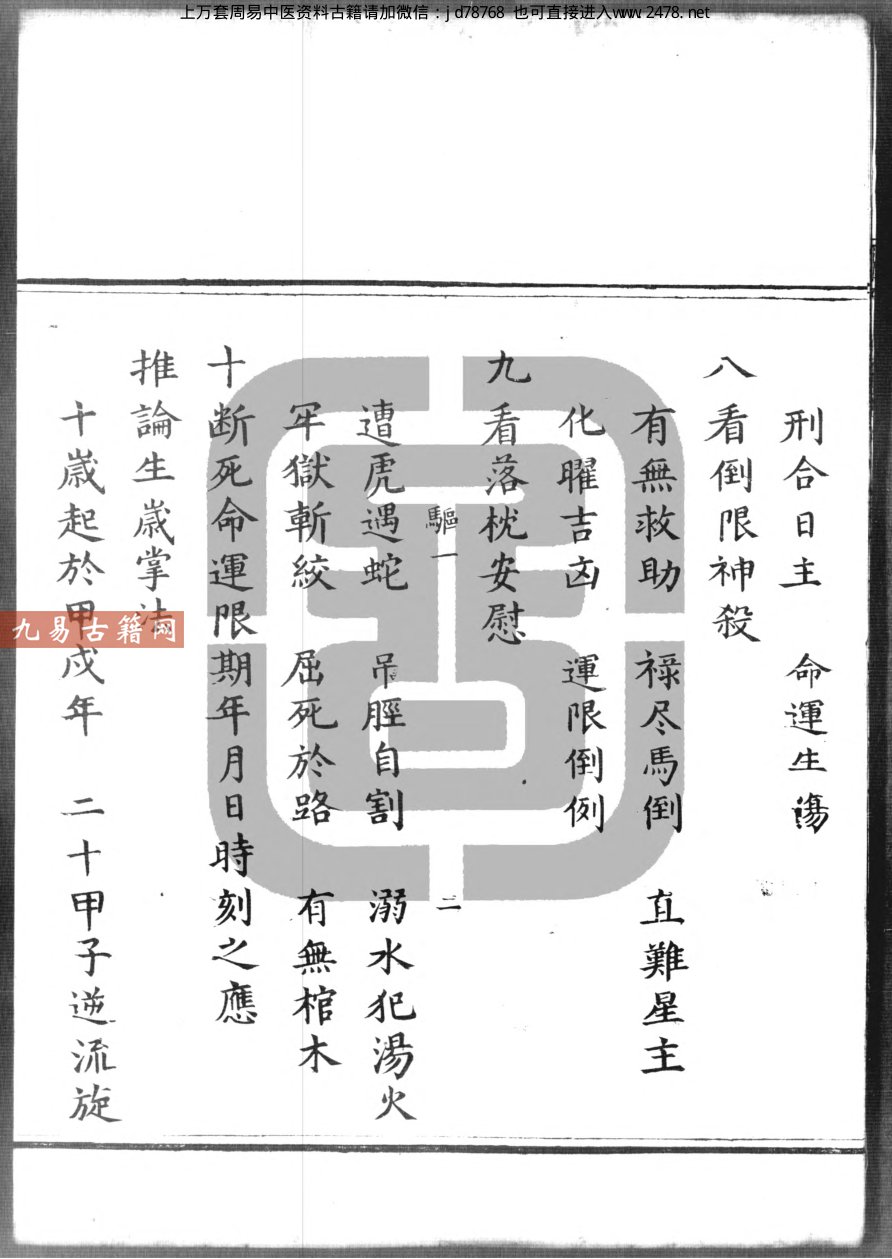 上万套周易中医资料古籍请加微信：jd78768 也可直接进入www.2478.net
刑合日主　命運生傷
八看倒限神殺
有無救助　祿尽馬倒　直難星主
化曜吉凶　運限倒例
九看落枕安慰
驅一　二
遭虎遇蛇　吊脛自割　溺水犯湯火
牢獄斬絞　屈死於路　有無棺木
十断死命運限期年月日時刻之應
推論生歲掌法
十歲起於甲戌年　二十甲子逆流旋
九易古籍网